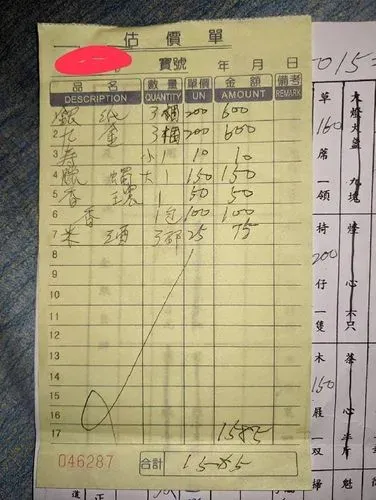 估價單
寶號 年 月 日
品名 數量 單價 金額 備考
DESCRIPTION QUANTITY UN AMOUNT REMARK
1 銀紙 3綑 200 600
2 九金 3綑 200 600
3 壽 小1 10 10
4 臘燭 大1 150 150
5 香環 1 50 50
6 香 1包 100 100
7 米酒 3 25 75
8
9
10
11
12
13
14
15
16
17 1585
046287 合計 1585
015=
九塊
燈心六只
草160席一領
椅200仔一隻
木150屐一双